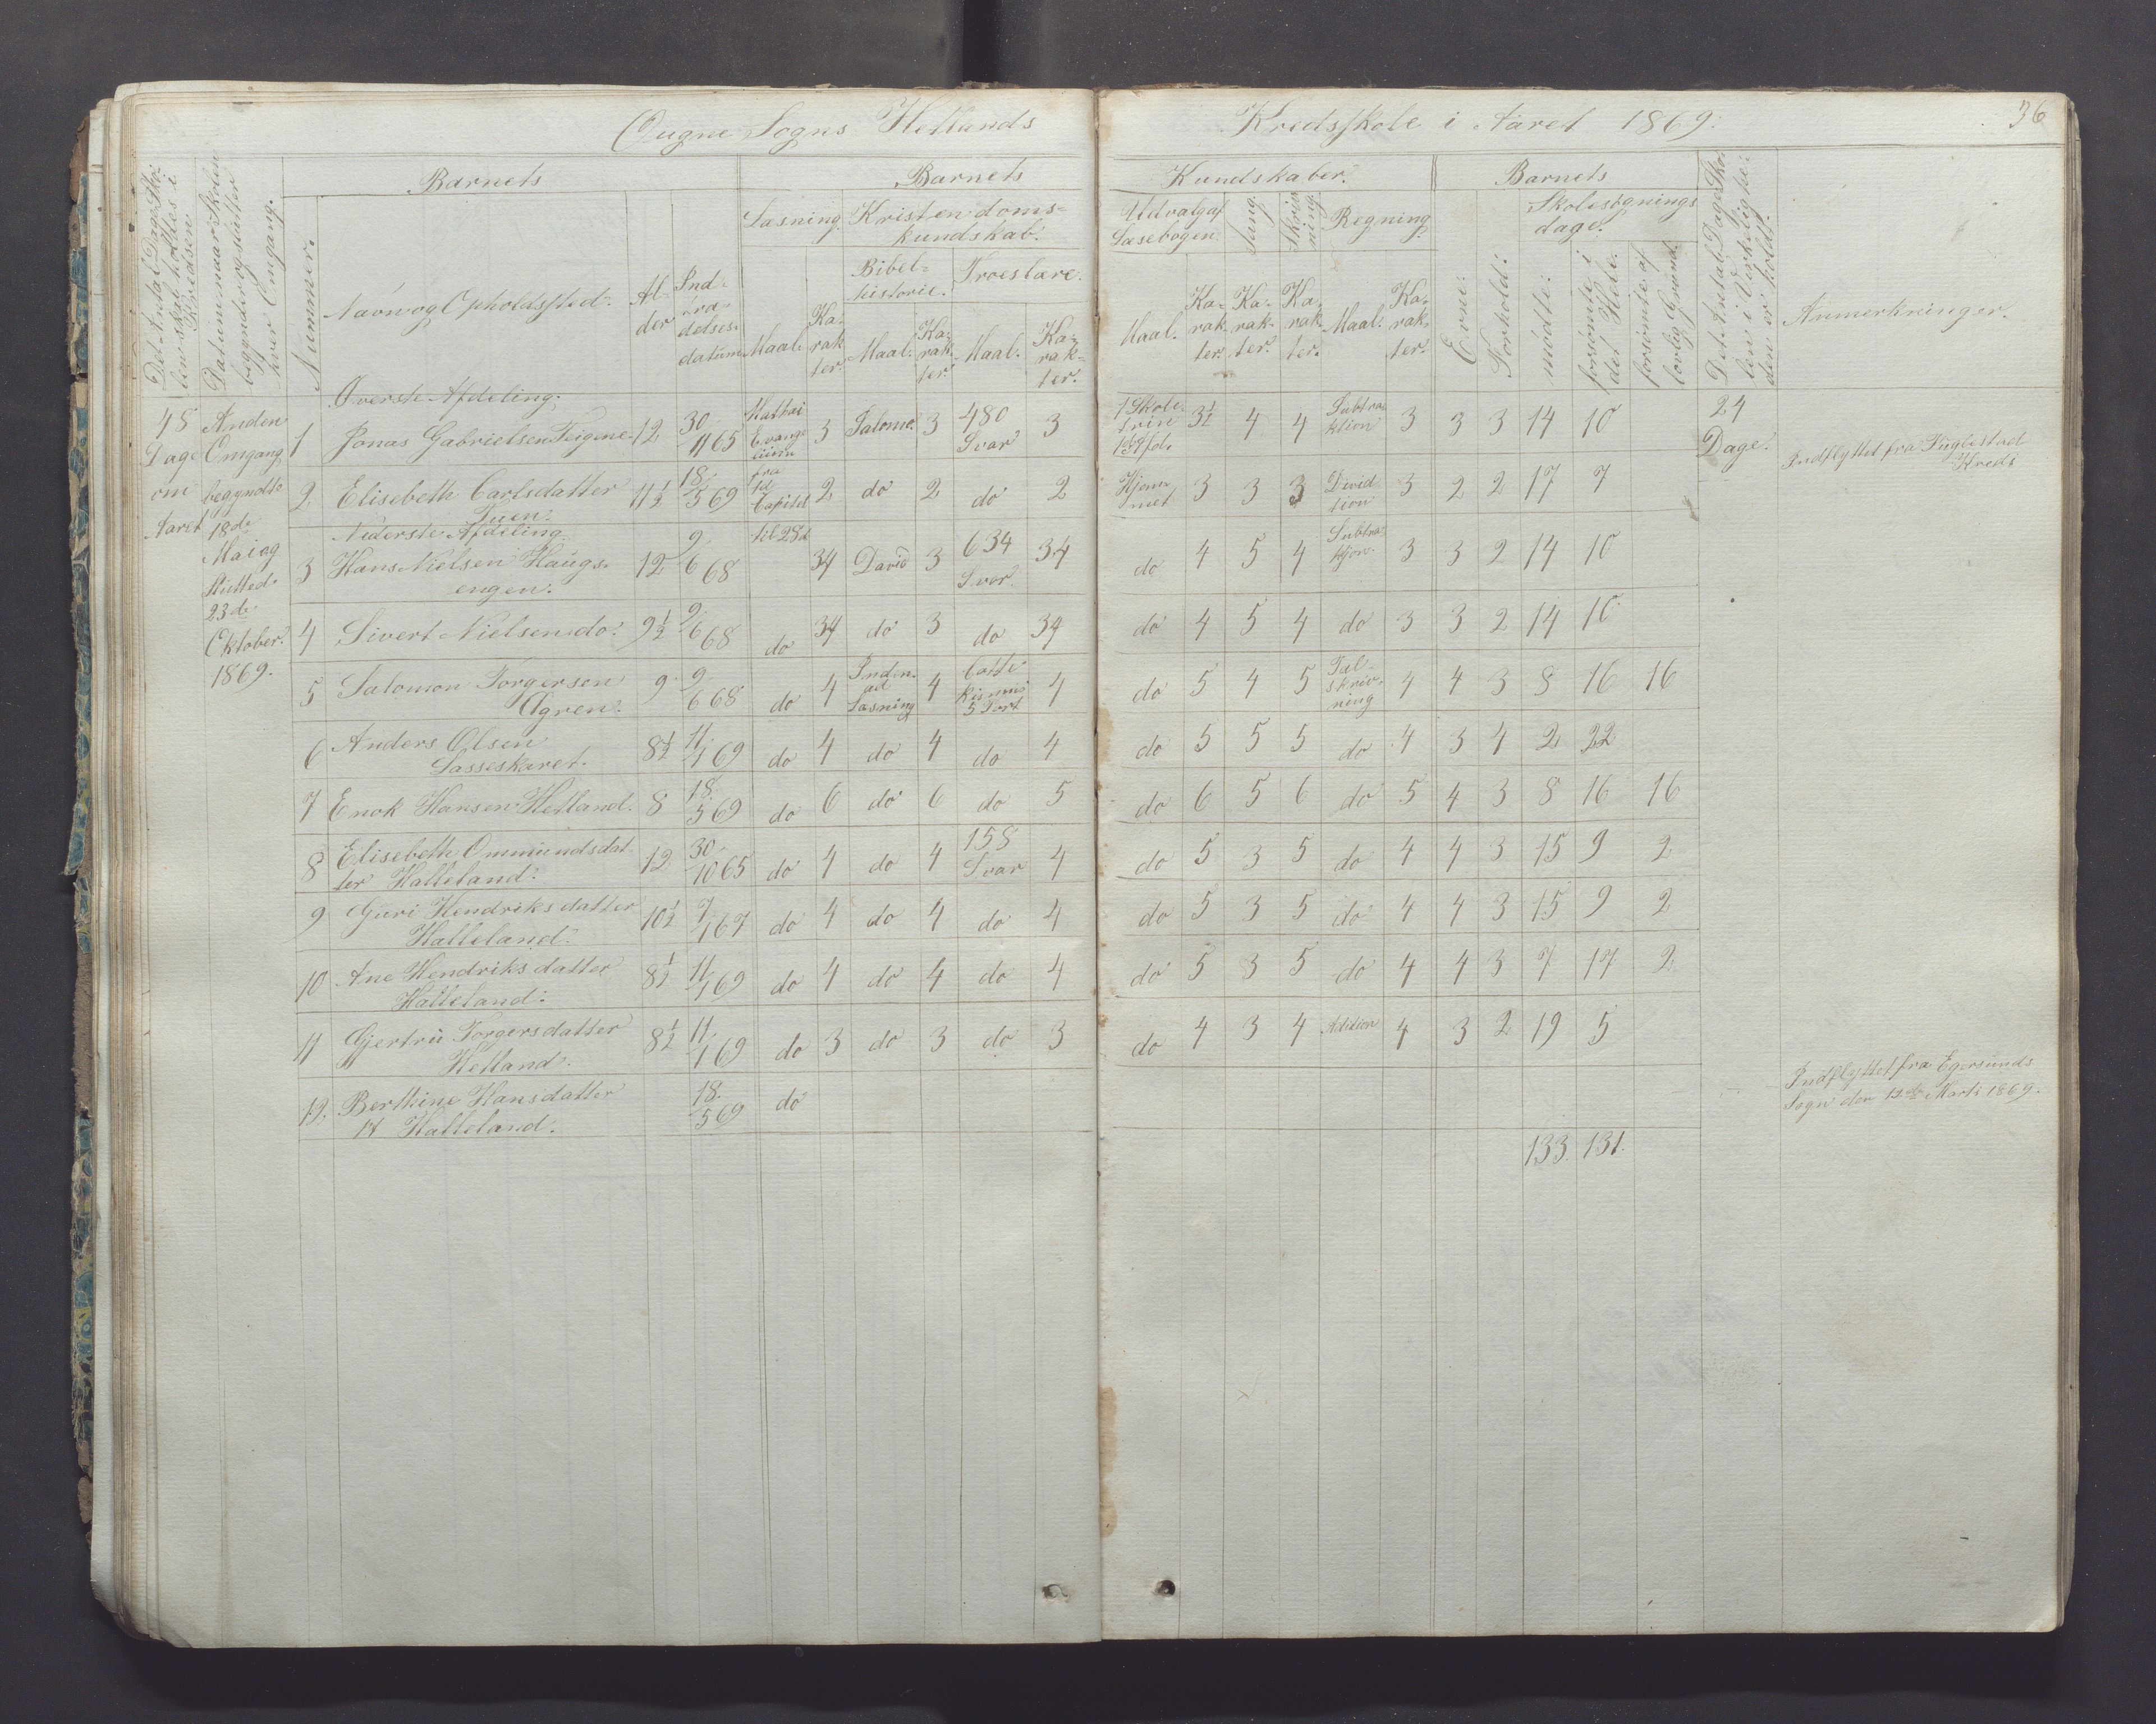 Ougne Sogns Hetlands Kredsskole i Aaret 1869.
36
Det Antal Dage Skolen skal holdes i Kredsen.
Datum naar Skolen begynder og slutter hver Omgang.
Barnets
Nummer.
Navn og Opholdssted.
Alder.
Indtrædelsesdatum.
Barnets Kundskaber.
Læsning.
Maal.
Karakter.
Kristendomskundskab.
Bibelhistorie.
Maal.
Karakter.
Troeslære.
Maal.
Karakter.
Udvalg af Læsebogen.
Maal.
Karakter.
Sang.
Karakter.
Skrivning.
Karakter.
Regning.
Maal.
Karakter.
Barnets
Evne.
Forhold.
Skolesøgningsdage.
mødte.
forsømte i det Hele.
forsømte af lovlig Grund.
Det Antal Dage Skolen i Virkeligheden er holdt.
Anmerkninger.
48 Dage om Aaret
Anden Omgang begyndte 18de Mai og sluttede 23de Oktober 1869.
24 Dage.
Øverste Afdeling.
1 Jonas Gabrielsen Teigene 12 30/11 65 Mathæi Evangelium fra 1d Capitel til 28d 3 Salomo. 3 480 Svar 3 1 Skoletrin 1ste Afd. 3½ 4 4 Subtraktion 3 3 3 14 10
2 Elisebeth Carlsdatter Tuen. 11½ 18/5 69 2 do 2 do 2 Hjemmet 3 3 3 Division 3 2 2 17 7 Indflyttet fra Fuglestad Kreds
Nederste Afdeling
3 Hans Nielsen Haugsengen. 12 9/6 68 34 David 3 634 Svar. 34 do 4 5 4 Subtraktjon 3 3 2 14 10
4 Sivert Nielsen do. 9½ 9/6 68 do 34 do 3 do 34 do 4 5 4 do 3 3 2 14 10
5 Salomon Torgersen Øgren. 9 9/6 68 do 4 Indenad Læsning 4 Cattekismus 5 Part 4 do 5 4 5 Talskrivning 4 4 3 8 16 16
6 Anders Olsen Sasseskaret. 8½ 11/1 69 do 4 do 4 do 4 do 5 5 5 do 4 3 4 2 22
7 Enok Hansen Hetland. 8 18/5 69 do 6 do 6 do 5 do 6 5 6 do 5 4 3 8 16 16
8 Elisebeth Ommundsdatter Halleland. 12 30/10 65 do 4 do 4 158 Svar 4 do 5 3 5 do 4 4 3 15 9 2
9 Guri Hendriksdatter Halleland. 10½ 7/1 67 do 4 do 4 do 4 do 5 3 5 do 4 4 3 15 9 2
10 Ane Hendriksdatter Halleland. 8½ 11/1 69 do 4 do 4 do 4 do 5 3 5 do 4 4 3 7 17 2
11 Gjertru Torgersdatter Hetland. 8½ 11/1 69 do 3 do 3 do 3 do 4 3 4 Adition 4 3 2 19 5
12. Berthine Hansdatter Halleland. 18/5 69 do Indflyttet fra Egersunds Sogn den 12de Marts 1869.
133. 131.